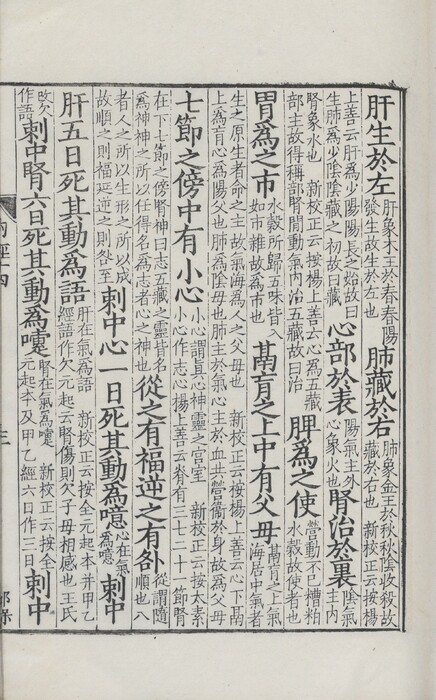 肝生於左肝象木王於春春陽發生故生於左也肺藏於右肺象金王於秋秋陰收殺故藏於右也　新校正云按楊
上善云肝為少陽陽長之始故曰生肺為少陰陰藏之初故曰藏心部於表陽氣主外心象火也腎治於裏陰氣主內
腎象水也　新校正云按楊上善云心為五藏部主故得稱部腎間動氣內治五藏故曰治脾為之使營動不已糟粕水穀故使者也
胃為之市水穀所歸五味皆入如市雜故為市也鬲肓之上中有父母鬲肓之上氣海居中氣者
生之原生者命之主故氣海為人之父母也　新校正云按楊上善云心下鬲上為肓心為陽父也肺為陰母也肺主於氣心主於血共營衛於身故為父母
七節之傍中有小心小心謂真心神靈之宮室　新校正云按太素小心作志心楊上善云脊有三七二十一節腎
在下七節之傍腎神曰志五藏之靈皆名為神神之所以任得名為志者心之神也從之有福逆之有咎從謂隨順也八
者人之所以生形之所以成故順之則福延逆之則咎至刺中心一日死其動為噫心在氣為噫刺中
肝五日死其動為語肝在氣為語　新校正云按全元起本并甲乙經語作欠元起云腎傷則欠子母相感也王氏
改欠作語刺中腎六日死其動為嚔腎在氣為嚔　新校正云按全元起本及甲乙經六日作三日刺中
內經四
三